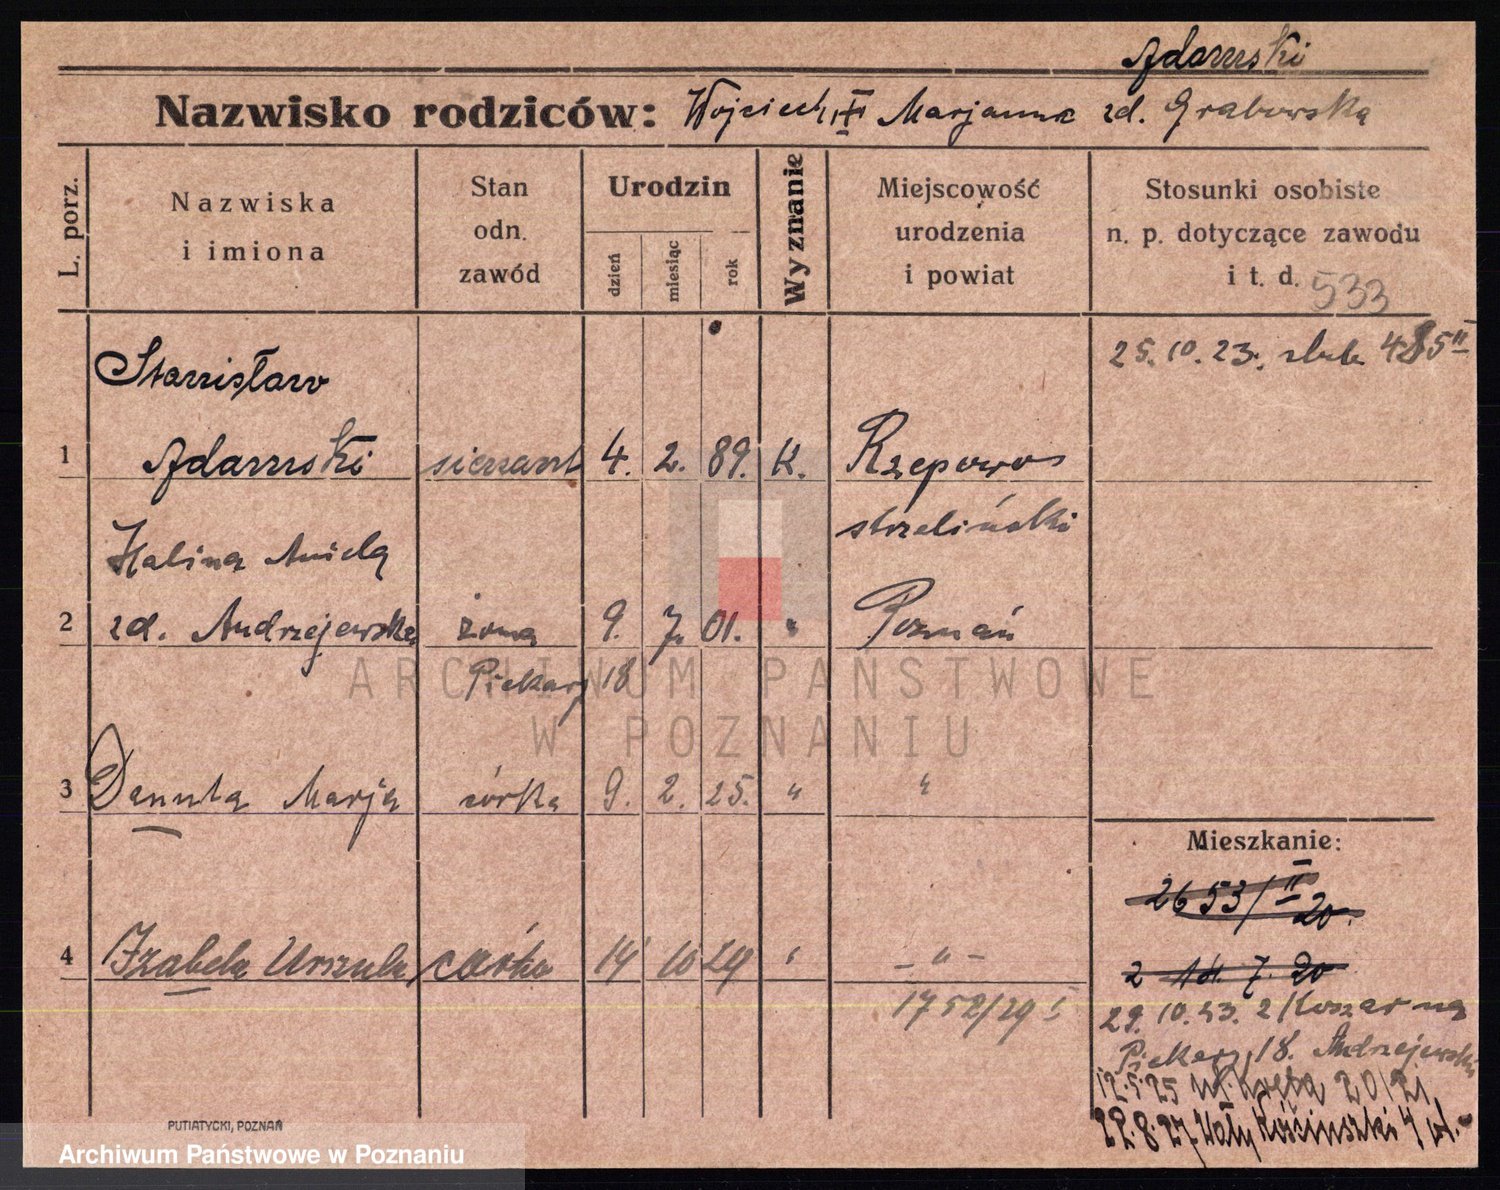 Adamski
Nazwisko rodziców: Wojciech Marjanna zd. Grabowska
L. porz.
Nazwiska
i imiona
Stan
odn.
zawód
Urodzin
dzień
miesiąc
rok
Wyznanie
Miejscowość
urodzenia
i powiat
Stosunki osobiste
n. p. dotyczące zawodu
i t. d. 533
25.10.23. 485 II
Stanisław
1 Adamski sierżant 4. 2. 89. K. Rzepowo
strzeliński
Halina Aniela
2 zd. Andrzejewska żona 9. 7. 01. " Poznań
Piekary 18
3 Danuta Marja córka 9. 2. 25. " "
4 Izabela Urszula córka 14 10 29 " - " -
1752/29 I
Mieszkanie:
2653/II 20
2 7. 20
29. 10. 23. z Koszar na
Piekary 18. Andrzejewski
12.5.25 ul. Kręta 20/21
22.8.27
PUTIATYCKI, POZNAŃ
ARCHIWUM PAŃSTWOWE
W POZNANIU
Archiwum Państwowe w Poznaniu